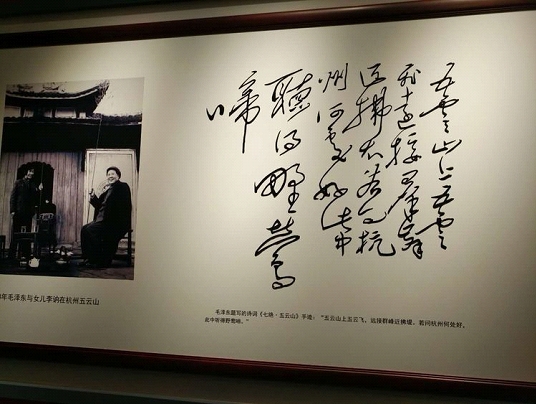 五雲山上五雲
飛遠接群峰
近拂堤若问杭
州何處好此中
聽得野鶯
啼
年毛泽东与女儿李讷在杭州五云山
毛泽东题写的诗词《七绝·五云山》手迹：“五云山上五云飞，远接群峰近拂堤。若问杭州何处好，
此中听得野莺啼。”